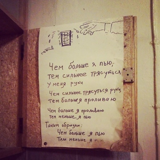 Чем больше я пью,
тем сильнее трясутся
у меня руки
Чем сильнее трясутся руки,
тем больше я проливаю
Чем больше я проливаю
тем меньше я пью
Таким образом
Чем больше я пью
Тем меньше я